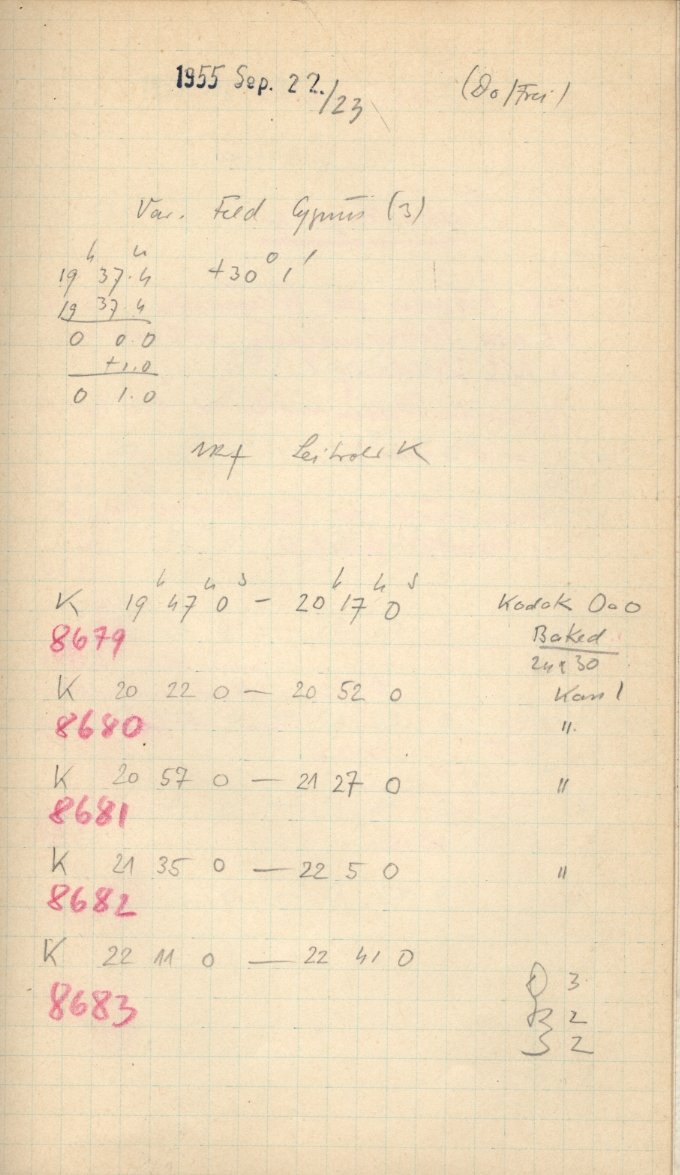 1955 Sep. 22./23 (Do/Frei)
Var. Feld Cygnus (3)
19h 37.4m +30° 1'
19 37.4
0 0.0
+1.0
0 1.0
K 19h 47m 0s — 20h 17m 0s Kodak OaO
8679 Baked
24x30
K 20 22 0 — 20 52 0 Kass 1
8680 "
K 20 57 0 — 21 27 0 "
8681
K 21 35 0 — 22 5 0 "
8682
K 22 11 0 — 22 41 0
8683
D 3
R 2
S 2